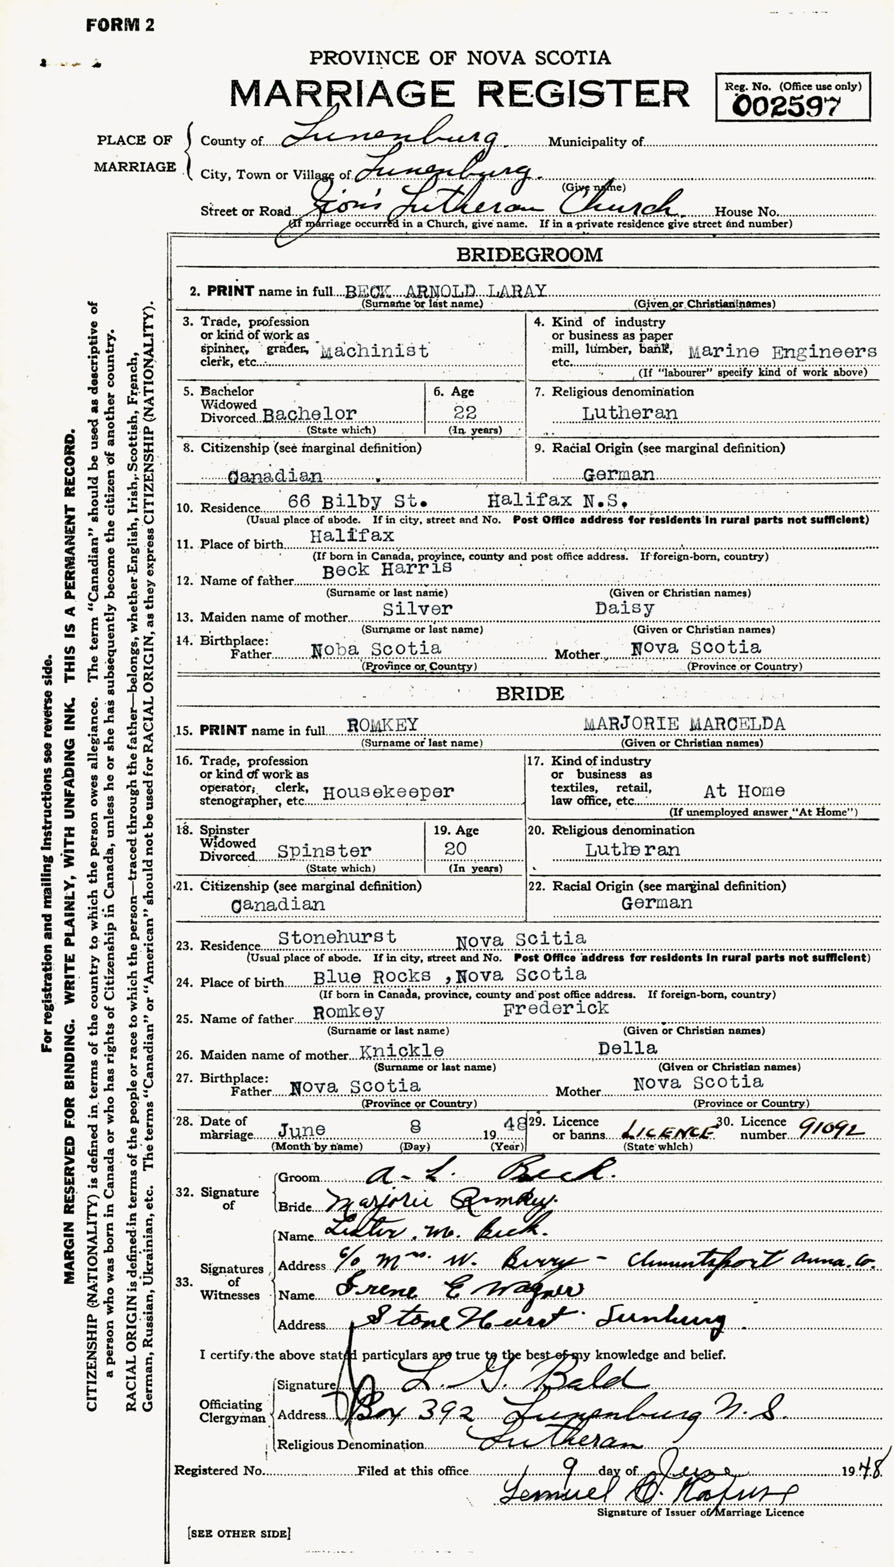 FORM 2
PROVINCE OF NOVA SCOTIA
MARRIAGE REGISTER
Reg. No. (Office use only)
002597
PLACE OF MARRIAGE
County of Lunenburg Municipality of
City, Town or Village of Lunenburg.
(Give name)
Street or Road Zion's Lutheran Church House No.
(If marriage occurred in a Church, give name. If in a private residence give street and number)
BRIDEGROOM
2. PRINT name in full BECK ARNOLD LARAY
(Surname or last name) (Given or Christian names)
3. Trade, profession or kind of work as spinner, grader, clerk, etc. Machinist
4. Kind of industry or business as paper mill, lumber, bank, etc. Marine Engineers
(If "labourer" specify kind of work above)
5. Bachelor Widowed Divorced Bachelor
(State which)
6. Age 22
(In years)
7. Religious denomination
Lutheran
8. Citizenship (see marginal definition)
Canadian
9. Racial Origin (see marginal definition)
German
10. Residence 66 Bilby St. Halifax N.S.
(Usual place of abode. If in city, street and No. Post Office address for residents in rural parts not sufficient)
11. Place of birth Halifax
(If born in Canada, province, county and post office address. If foreign-born, country)
12. Name of father Beck Harris
(Surname or last name) (Given or Christian names)
13. Maiden name of mother Silver Daisy
(Surname or last name) (Given or Christian names)
14. Birthplace:
Father Noba Scotia Mother Nova Scotia
(Province or Country) (Province or Country)
BRIDE
15. PRINT name in full ROMKEY MARJORIE MARCELDA
(Surname or last name) (Given or Christian names)
16. Trade, profession or kind of work as operator, clerk, stenographer, etc. Housekeeper
17. Kind of industry or business as textiles, retail, law office, etc. At Home
(If unemployed answer "At Home")
18. Spinster Widowed Divorced Spinster
(State which)
19. Age 20
(In years)
20. Religious denomination
Lutheran
21. Citizenship (see marginal definition)
Canadian
22. Racial Origin (see marginal definition)
German
23. Residence Stonehurst Nova Scitia
(Usual place of abode. If in city, street and No. Post Office address for residents in rural parts not sufficient)
24. Place of birth Blue Rocks ,Nova Scotia
(If born in Canada, province, county and post office address. If foreign-born, country)
25. Name of father Romkey Frederick
(Surname or last name) (Given or Christian names)
26. Maiden name of mother Knickle Della
(Surname or last name) (Given or Christian names)
27. Birthplace:
Father Nova Scotia Mother Nova Scotia
(Province or Country) (Province or Country)
28. Date of marriage June 8 1948
(Month by name) (Day) (Year)
29. Licence or banns LICENCE
(State which)
30. Licence number 91092
32. Signature of
Groom A. L. Beck.
Bride Marjorie Romkey.
33. Signatures of Witnesses
Name Lester. M. Beck.
Address c/o Mrs. W. Berry - Clementsport Anna. Co.
Name Irene E Wagner
Address Stone Hurst Lunburg.
I certify the above stated particulars are true to the best of my knowledge and belief.
Officiating Clergyman
Signature L. G. Bald
Address Box 392 Lunenburg N. S.
Religious Denomination Lutheran
Registered No. Filed at this office 9 day of June 1948
Lemuel
Signature of Issuer of Marriage Licence
[SEE OTHER SIDE]
For registration and mailing instructions see reverse side.
MARGIN RESERVED FOR BINDING. WRITE PLAINLY, WITH UNFADING INK. THIS IS A PERMANENT RECORD.
CITIZENSHIP (NATIONALITY) is defined in terms of the country to which the person owes allegiance. The term "Canadian" should be used as descriptive of
a person who was born in Canada or who has rights of Citizenship in Canada, unless he or she has subsequently become the citizen of another country.
RACIAL ORIGIN is defined in terms of the people or race to which the person—traced through the father—belongs, whether English, Irish, Scottish, French,
German, Russian, Ukrainian, etc. The terms "Canadian" or "American" should not be used for RACIAL ORIGIN, as they express CITIZENSHIP (NATIONALITY).